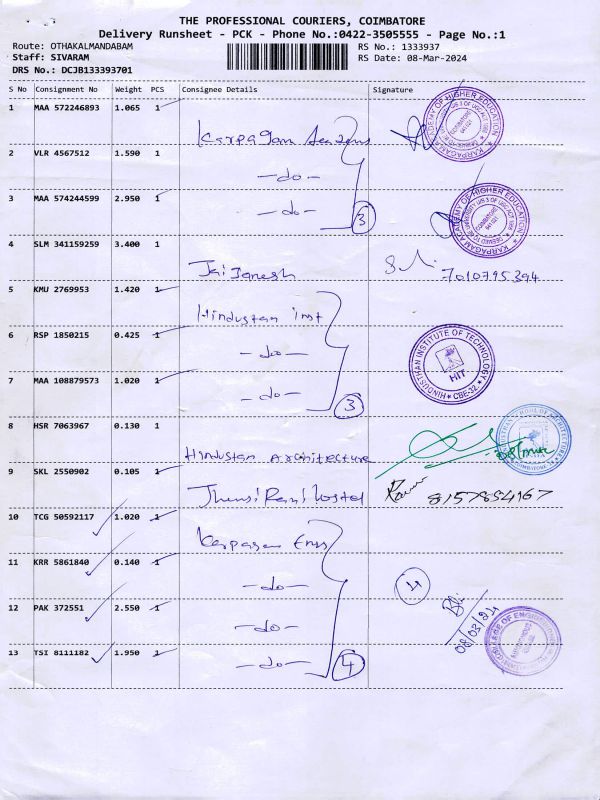 THE PROFESSIONAL COURIERS, COIMBATORE
Delivery Runsheet - PCK - Phone No.:0422-3505555 - Page No.:1
Route: OTHAKALMANDABAM
RS No.: 1333937
Staff: SIVARAM
RS Date: 08-Mar-2024
DRS No.: DCJB133393701
S No Consignment No Weight PCS Consignee Details Signature
1 MAA 572246893 1.065 1
Karpagam
2 VLR 4567512 1.590 1
-do-
3 MAA 574244599 2.950 1
-do- 3
KARPAGAM ACADEMY OF HIGHER EDUCATION
4 SLM 341159259 3.400 1
Jai Ganesh 7010795394
5 KMU 2769953 1.420 1
Hindustan inst
6 RSP 1850215 0.425 1
-do-
7 MAA 108879573 1.020 1
-do- 3
HINDUSTHAN INSTITUTE OF TECHNOLOGY
HIT
CBE-32
8 HSR 7063967 0.130 1
Hindustan Architecture
9 SKL 2550902 0.105 1
Jhansi Rani hostel 8157854167
10 TCG 50592117 1.020 1
Karpagam Engg
11 KRR 5861840 0.140 1
-do- 4
12 PAK 372551 2.550 1
-do- 08/03/24
13 TSI 8111182 1.950 1
-do- 4